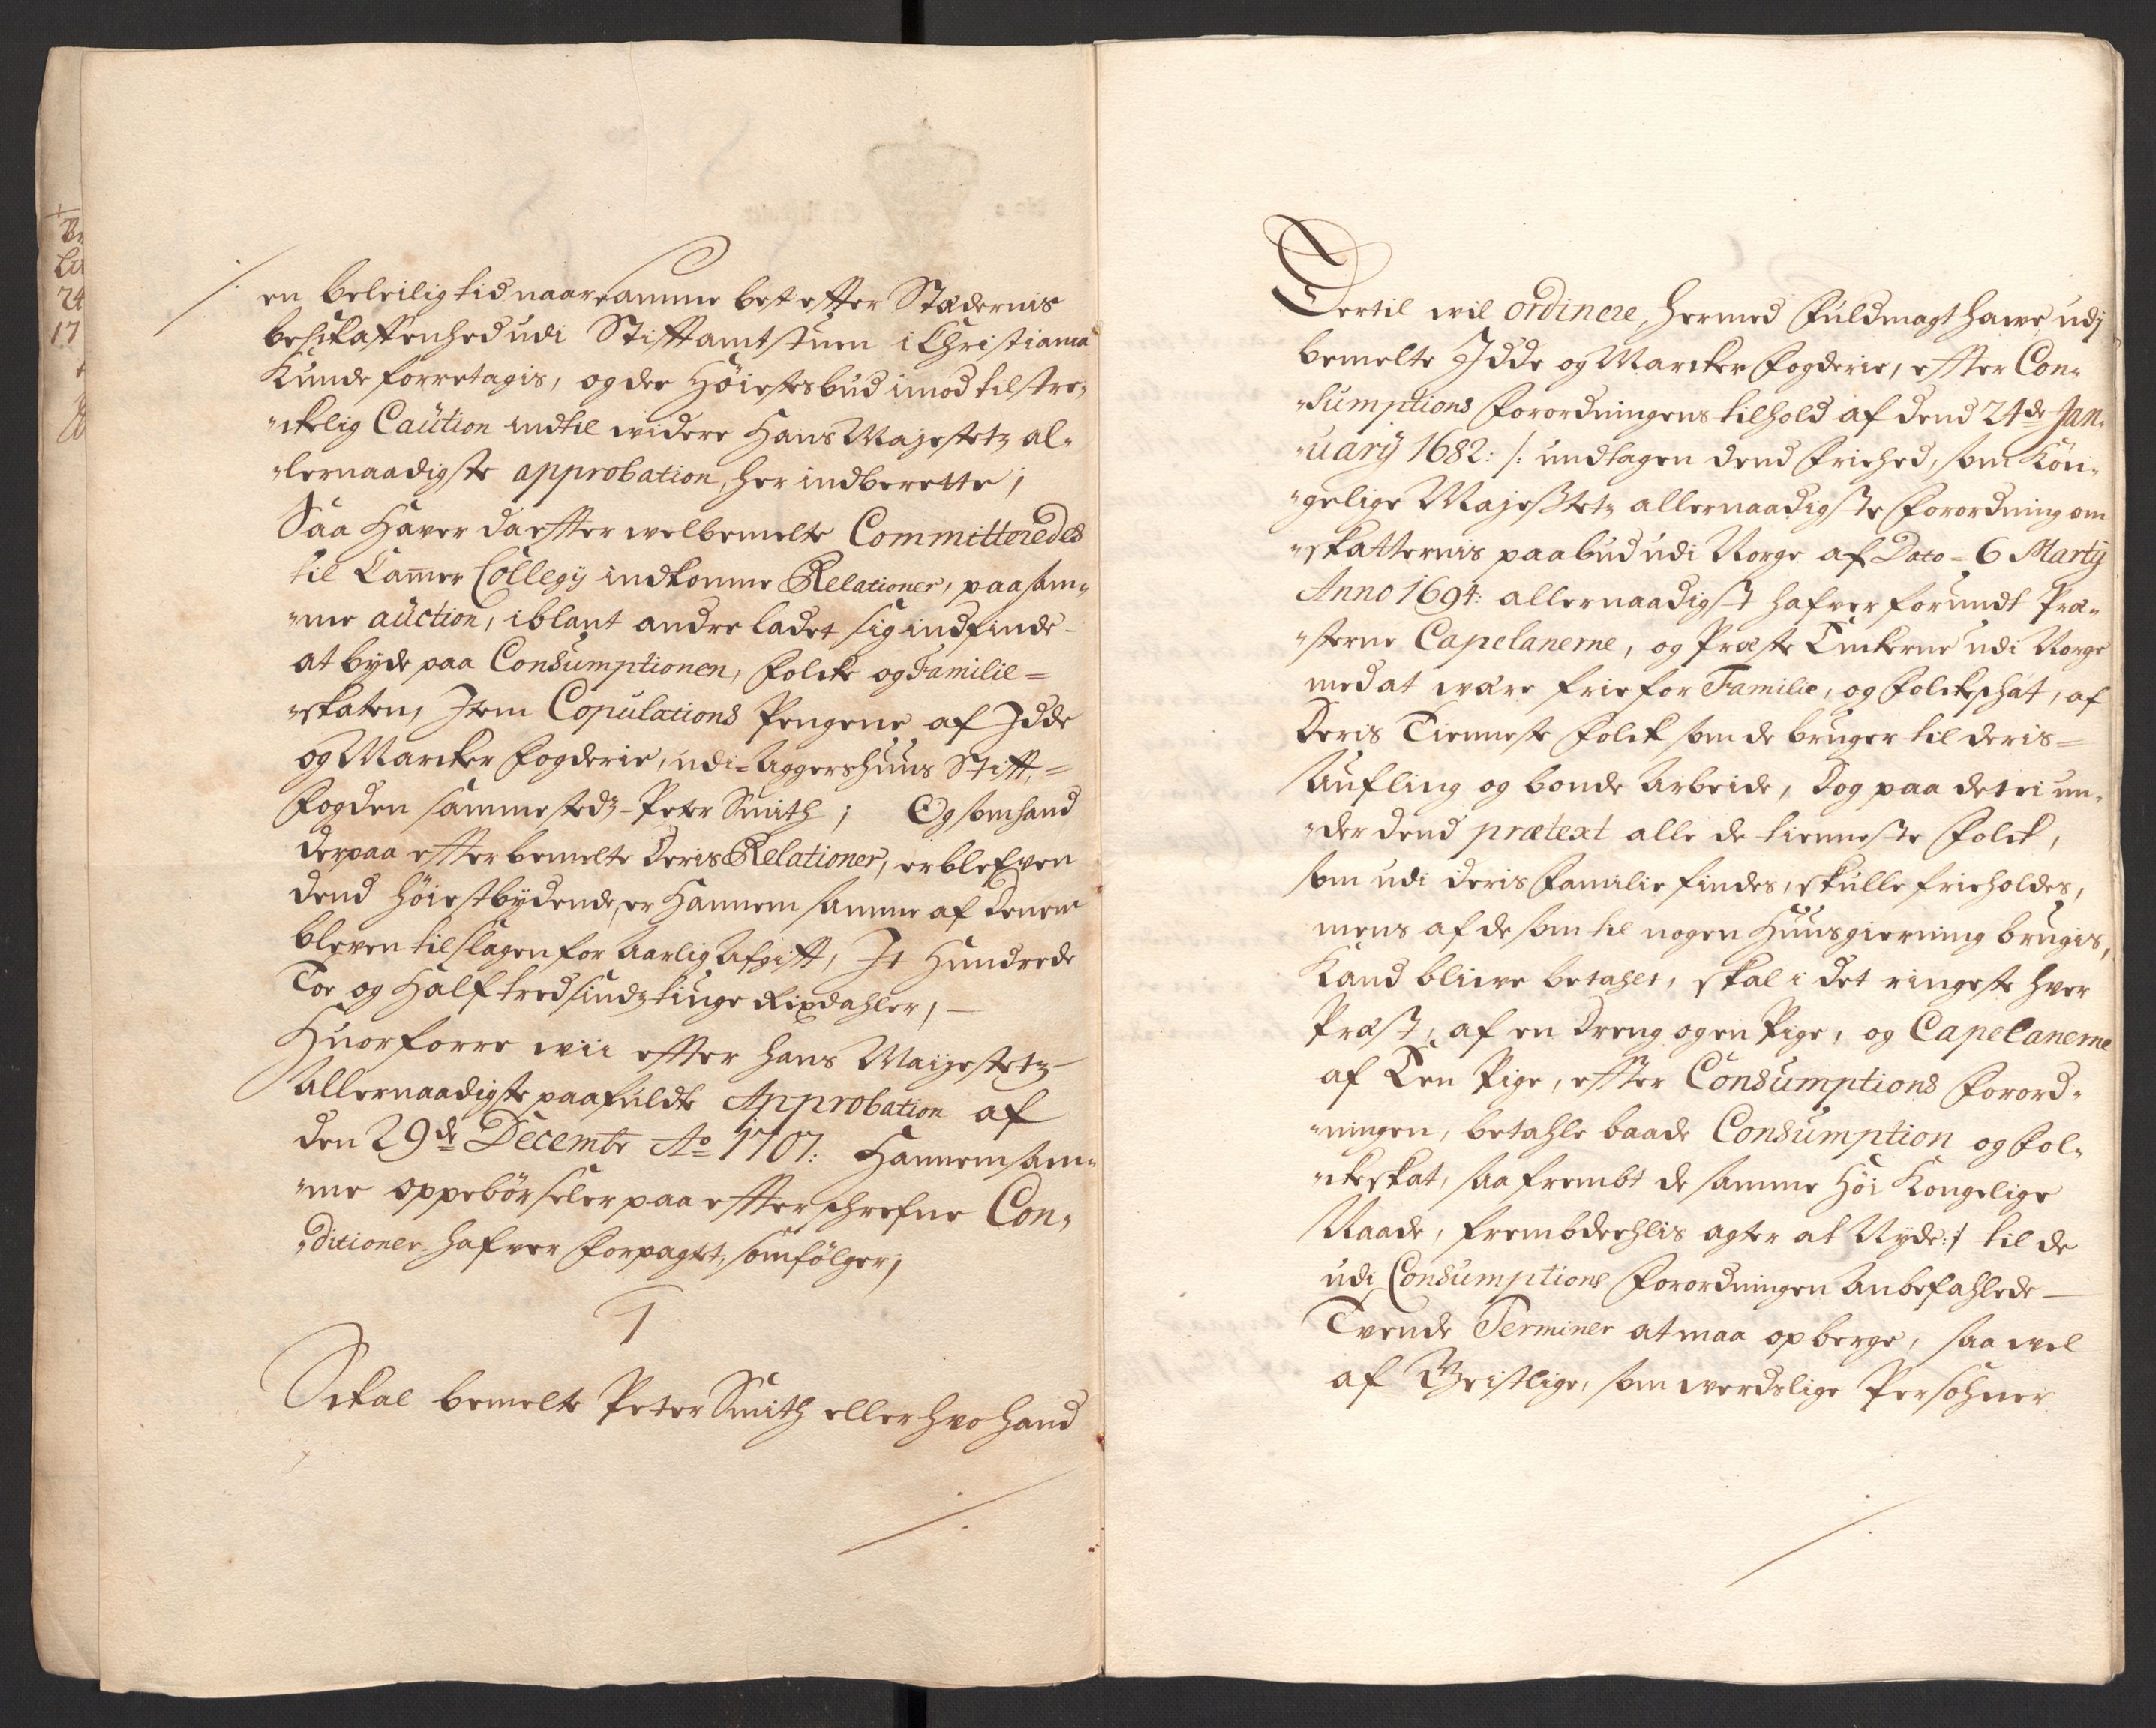 en beleilig tid naar samme best effter Stædernis
beschaffenhed udi Stifftamtstuen i Christiania
Kunde forretagis, og den Höiestesbud imod tilstre„
„ckelig Caution indtil widere Hans Majestetz al„
„lernaadigste approbation, her indberette;
Saa Haver da effter welbemelte Committeredes
til Cammer Collegij indkomne Relationer, paa sam„
„me auction, iblant andre ladet sig indfinde
at byde paa Consumptionen, Folcke og Familie=
„skaten, Item Copulations Pengene af Idde
og Marcker Fogderie, udi Aggershuus Stifft,=
Fogden sammestedz Peter Smith; Og som hand
derpaa effter bemelte deris Relationer, er blefven
dend höiestbydende, er Hannem samme af dennem
bleven tilslagen for Aarlig Afgifft, It Hundrede
Toe og Halftredsindztiuge Rixdahler, —
Huorforre wii effter Hans Maijestetz
Allernaadigste paafuldte Approbation af
den 29de Decembr Ao 1707: Hannem sam„
„me oppebörseler paa effterschrefne Con„
„ditioner hafver forpagtet, som fölger,
1
Skal bemelte Peter Smith eller hvo hand
Dertil wil ordinere, hermed Fuldmagt hawe udj
bemelte Idde og Marcker Fogderie, effter Con„
„sumptions Forordningens tilhold af dend 24de Jan„
„uarij 1682: /: undtagen dend Friehed, som Kön„
„gelige Majestetz allernaadigste Forordning om
„skatternis paabud udi Norge af Dato = 6 Martij
Anno 1694: allernaadigst hafver forundt Præ„
„sterne Capelanerne, og Præste Enckerne udi Norge
med at wære frie for Familie, og Folckeschat, af
Deris Tienneste Folck som de bruger til deris=
Aufling og bonde Arbeide, Dog paa det ei un„
„der dend prætext alle de tienneste Folck,
som udi deris Familie findes, skulle frieholdes,
mens af de som til nogen Huusgierning brugis,
Kand blive betahlt, skal i det ringeste hver
Præst, af en dreng og en Pige, og Capelanerne
af Een Pige, effter Consumptions Forord„
„ningen, betahle baade Consumption og Fol„
„ckeskat, saa frembt de samme Höi Kongelige
Naade, frembdeehlis agter at Nyde :/ til de
udi Consumptions Forordningen Anbefahlede —
Tvende Terminer at maa opberge, saa wel
af Geistlige, som werdslige Persohner